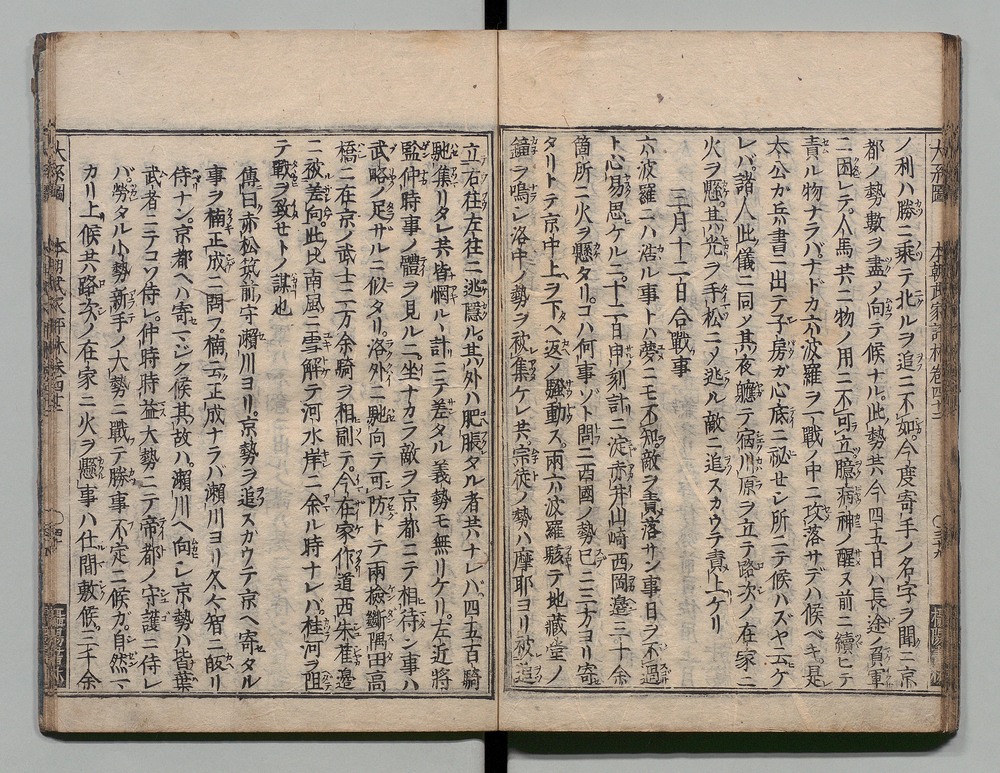 ノ利ハ勝ニ乗テ北ルヲ追ニ不如今度寄手ノ名字ヲ聞ニ京
都ノ勢數ヲ盡ノ向テ候ナル此勢共今四五日ハ長途ノ負軍
ニ困レテ人馬共ニ物ノ用ニ不可立臆病神ノ醒ヌ前ニ續ヒテ
責ル物ナラバナドカ六波羅ヲ一戰ノ中ニ攻落サデハ候ベキ是
太公カ兵書ニ出テ子房カ心底ニ祕セシ所ニテ候ハズヤト云ケ
レバ諸人此儀ニ同メ其夜軈テ宿川原ヲ立テ路次ノ在家ニ
火ヲ懸其光ヲ手松ニメ逃ル敵ニ追スカウテ責上ケリ
三月十二日合戰事
六波羅ニハ浩ル事トハ夢ニモ不知敵ヲ責落サン事日ヲ不過
ト心易思ケルニ十二日申刻計ニ淀赤井山崎西岡邊三十余
箇所ニ火ヲ懸タリコハ何事ゾト問ニ西國ノ勢已ニ三方ヨリ寄
タリトテ京中上ヲ下ヘ返メ騷動ス兩六波羅駭テ地藏堂ノ
鐘ヲ鳴シ洛中ノ勢ヲ被集ケレ共宗徒ノ勢ハ摩耶ヨリ被追
大系圖 本朝武家評林卷四十二
立右往左往ニ逃隱ル其外ハ肥脹タル者共ナレバ四五百騎
馳集リタレ共皆惘ル計ニテ差タル義勢モ無リケリ左近將
監仲時事ノ體ヲ見ルニ坐ナカラ敵ヲ京都ニテ相待ン事ハ
武略ノ足ザルニ似タリ洛外ニ馳向テ可防トテ兩檢斷隅田高
橋ニ在京ノ武士二万余騎ヲ相副テ今在家作道西朱雀邊
ニ被差向此比南風ニ雪解テ河水岸ニ余ル時ナレバ桂河ヲ阻
テ戰ヲ致セトノ謀也
傳曰赤松筑前守瀨川ヨリ京勢ヲ追スカウテ京ヘ寄タル
事ヲ楠正成ニ問フ楠云正成ナラバ瀨川ヨリ久々智ニ皈リ
侍ナン京都ヘハ寄マジク候其故ハ瀨川ヘ向シ京勢ハ皆葉
武者ニテコソ侍レ仲時時益大勢ニテ帝都ノ守護ニ侍レ
バ勞タル小勢新手ノ大勢ニ戰テ勝事不定ニ候ガ自然ニ
カリ上候共路次ノ在家ニ火ヲ懸事ハ仕間敷候三千余